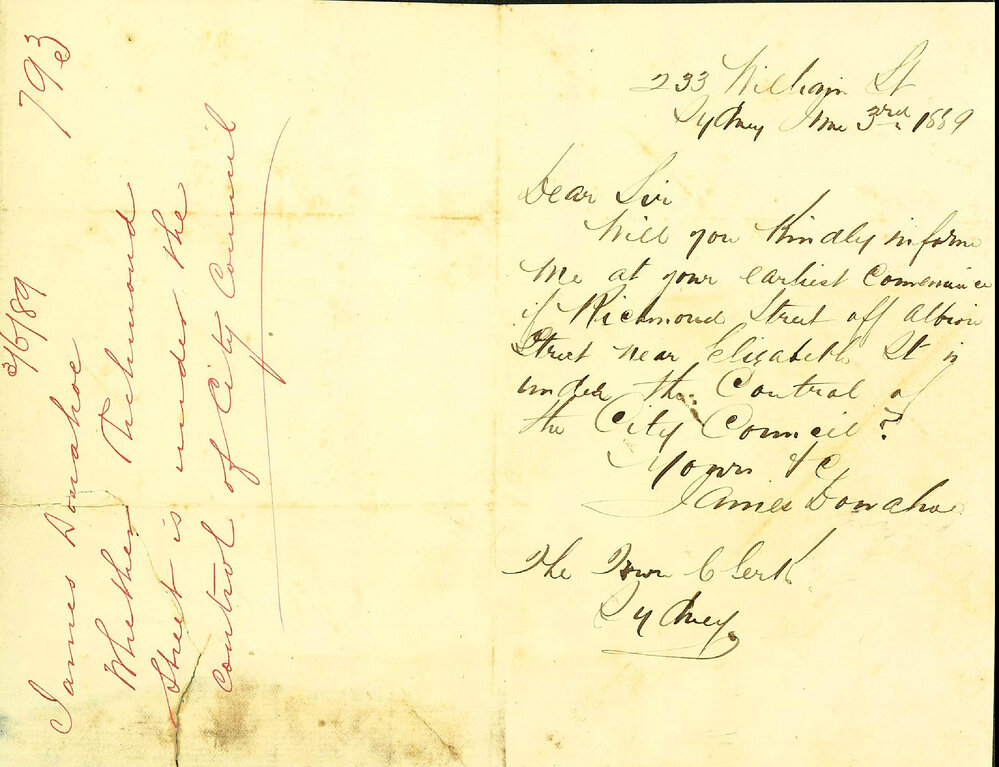 233 William St
Sydney June 3rd 1889
Dear Sir
Will you kindly inform
me at your earliest convenience
if Richmond Street off Albion
Street near Elizabeth St is
under the Control of
the City Council?
Yours &c
James Donahoe
The Town Clerk
Sydney
3/6/89 793
James Donahoe
Whether Richmond
Street is under the
control of City Council